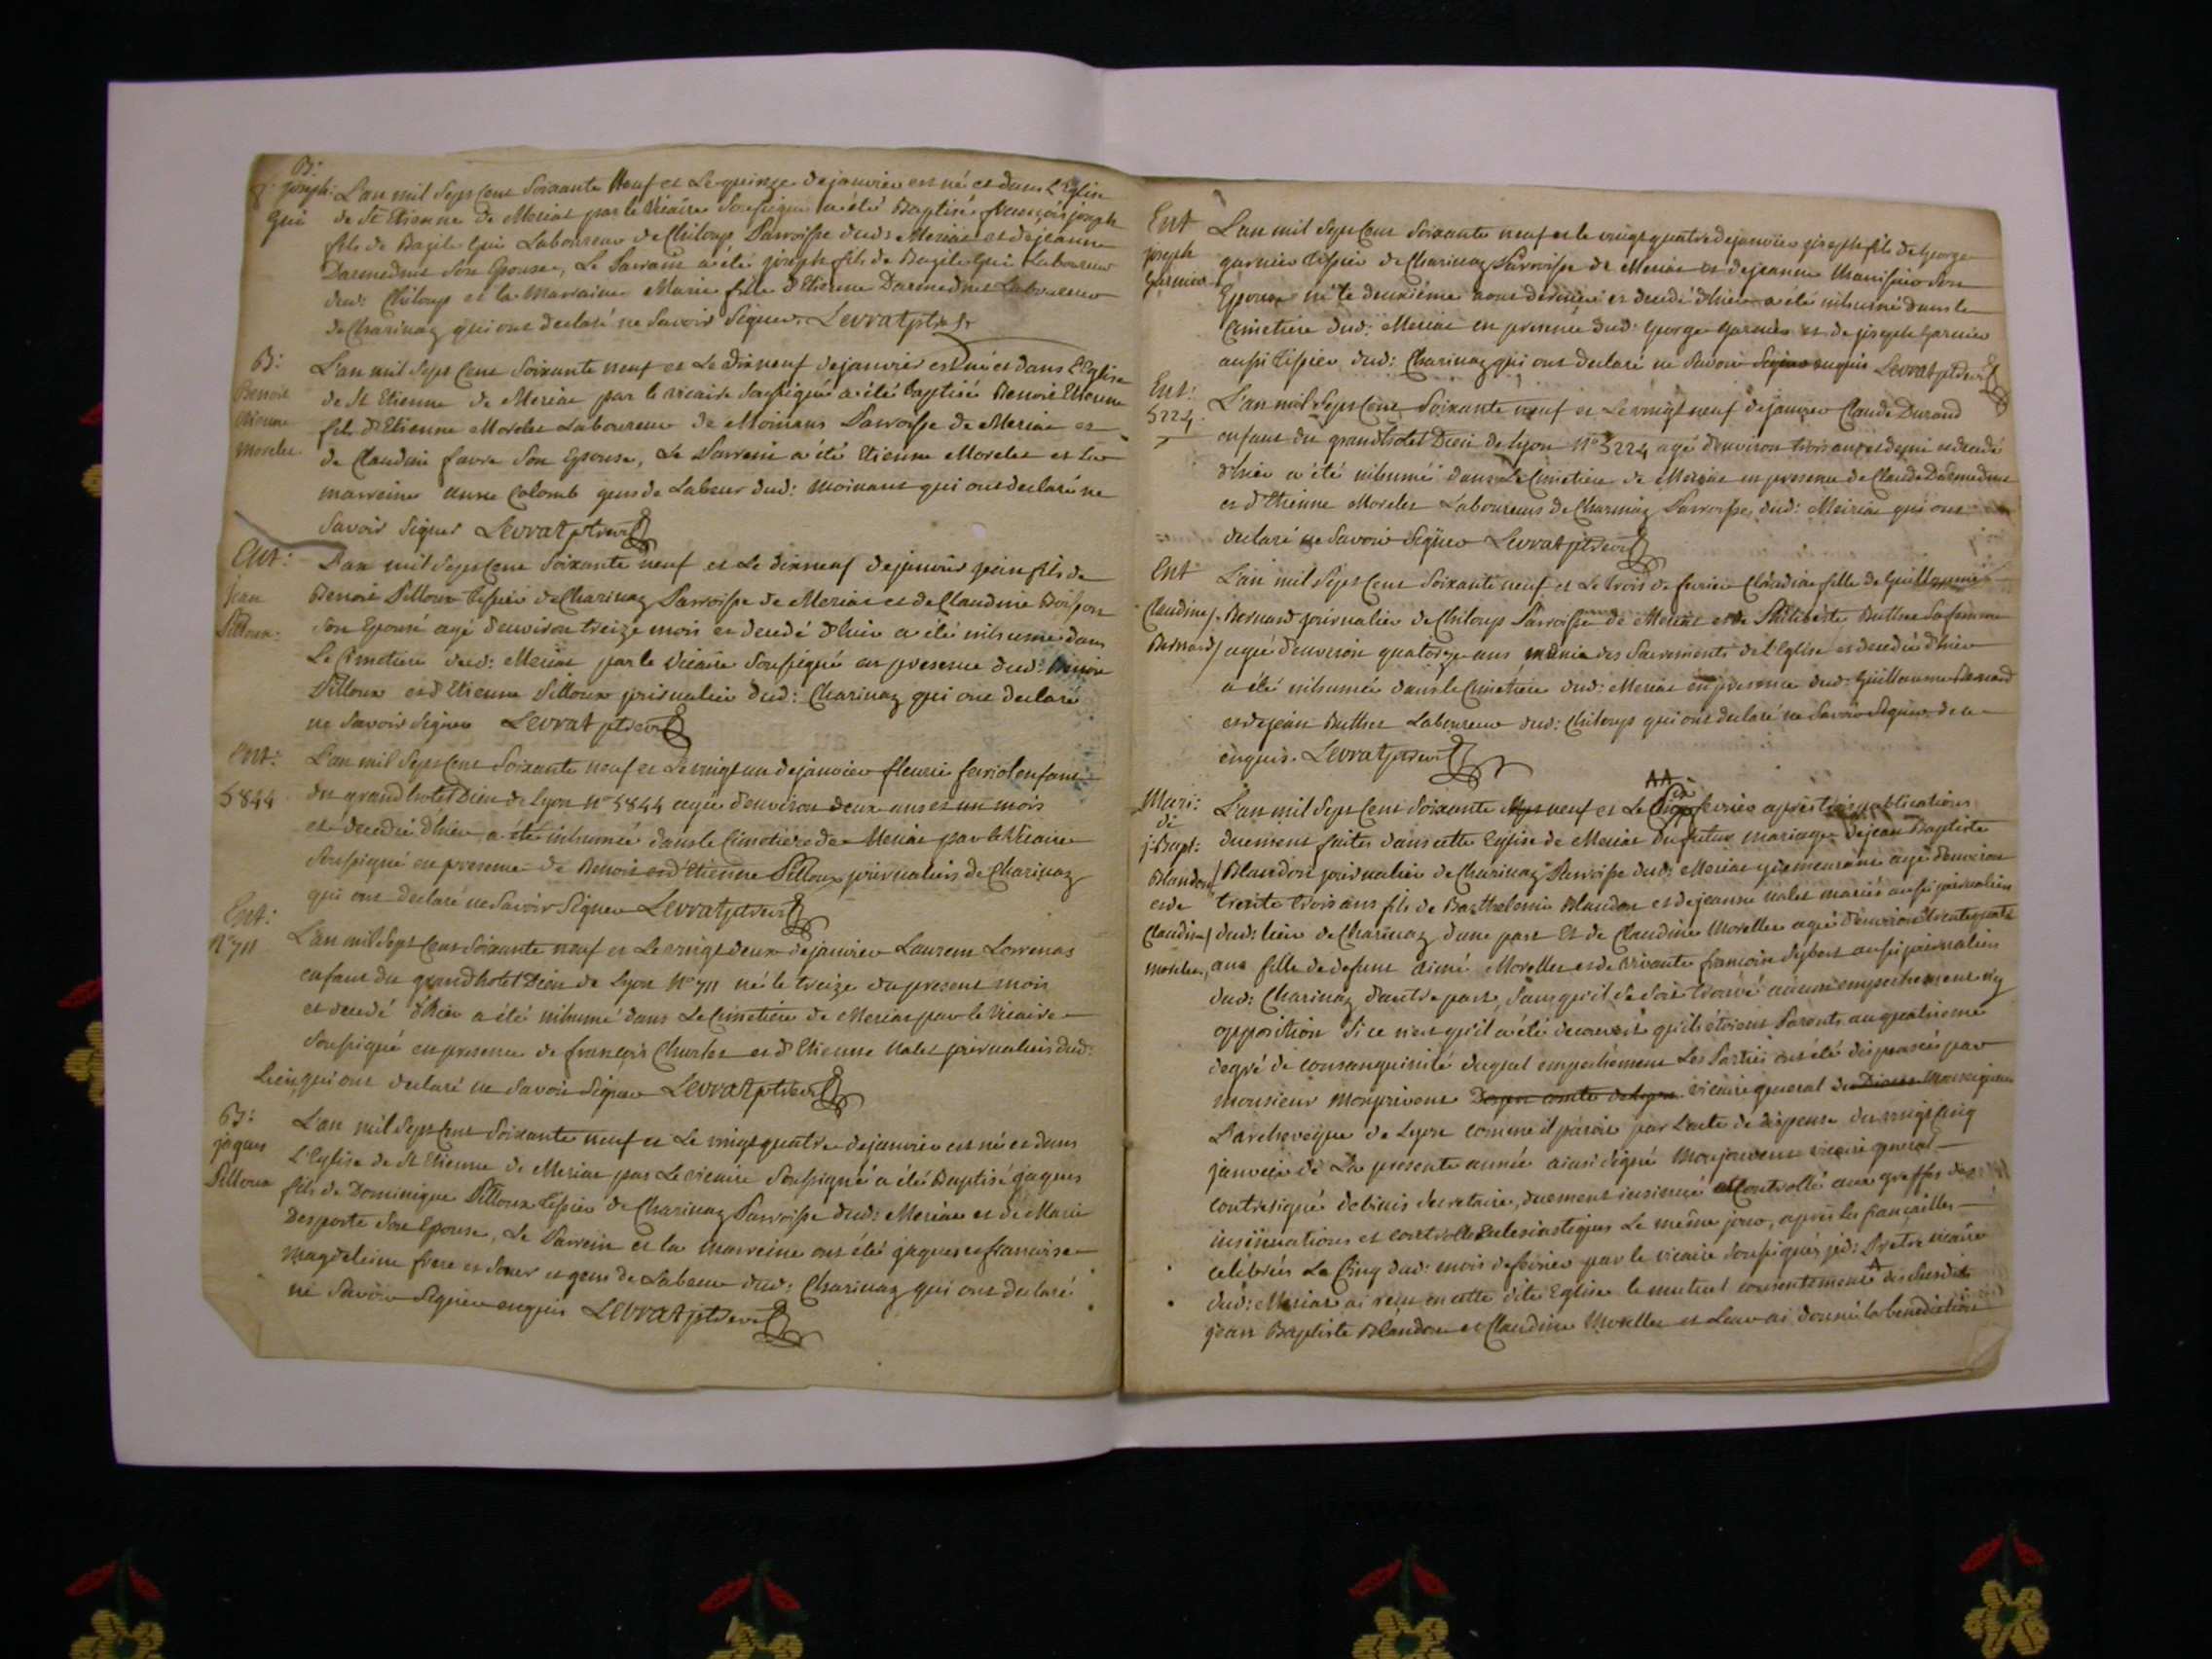 B:
f. joseph: L'an mil Sept Cent Soixante Neuf et Le quinze de janvier est né et dans L'Eglise
Gui de St Etienne de Meriat par le Vicaire Soussigné a été Baptisé françois joseph
fils de Bazile Gui Laboureur de Chiloup Parroisse dud: Meriat et de jeanne
Darmednet Son Epouse, Le Parrain a été joseph fils de Bazile Gui Laboureur
dud: Chiloup et la Marraine Marie fille d'Etienne Darmednet Laboureur
de Charinaz qui ont declaré ne Savoir Signer. Levrat ptre vic
B: L'an mil Sept Cent Soixante neuf et Le dixneuf de janvier est né et dans L'Eglise
Benoit de St Etienne de Meriat par le vicaire Soussigné a été baptisé Benoit Etienne
Etienne fils d'Etienne Morelet Laboureur de Moinans Parroisse de Meriat et
Morelet de Claudine favre Son Epouse, Le Parrein a été Etienne Morelet et la
marreine anne Colomb gens de Labeur dud: Moinans qui ont declaré ne
Savoir Signer Levrat ptre vic
Ent: L'an mil Sept Cent Soixante neuf et Le dixneuf de janvier jean fils de
jean Benoit Pilloux Tissier de Charinaz Parroisse de Meriat et de Claudine Boisson
Pilloux: Son Epouse agé d'environ treize mois et decedé d'hier a été inhumé dans
Le Cimetiere dud: Meriat par le Vicaire Soussigné en presence dud: Benoit
Pilloux et d'Etienne Pilloux journalier dud: Charinaz qui ont declaré
ne Savoir Signer Levrat ptre vic
Ent: L'an mil Sept Cent Soixante neuf et Le vingt un de janvier fleurie ferriol enfant
5844 du grand hotel Dieu de Lyon N° 5844 agée d'environ deux ans et un mois
et decedée d'hier, a été inhumée dans le Cimetiere de Meriat par le Vicaire
Soussigné en presence de Benoit et d'Etienne Pilloux journaliers de Charinaz
qui ont declaré ne Savoir Signer Levrat ptre vic
Ent:
N° 711 L'an mil Sept Cent Soixante neuf et Le vingt deux de janvier Laurent Lorrenas
enfant du grand hotel Dieu de Lyon N° 711 né le treize du present mois
et decedé d'hier a été inhumé dans Le Cimetiere de Meriat par le Vicaire
Soussigné en presence de françois Charlet et d'Etienne Nalet journaliers dud:
Lieu, qui ont declaré ne Savoir Signer Levrat ptre vic
B: L'an mil Sept Cent Soixante neuf et Le vingt quatre de janvier est né et dans
jaques L'Eglise de St Etienne de Meriat par Le vicaire Soussigné a été Baptisé jaques
Pilloux fils de Dominique Pilloux Tissier de Charinaz Parroisse dud: Meriat et de Marie
Desporte Son Epouse, Le Parrein et la marreine ont été jaques et francoise
Magdeleine frere et Soeur et gens de Labeur dud: Charinaz qui ont declaré
ne Savoir Signer enquis Levrat ptre vic
Ent L'an mil Sept Cent Soixante neuf et le vingt quatre de janvier joseph fils de George
joseph garnier Tissier de Charinaz Parroisse de Meriat et de jeanne Son
Garnier Epouse né le deuxiéme aout dernier et decedé d'hier a été inhumé dans le
Cimetiere dud: Meriat en presence dud: George Garnier et de joseph Garnier
aussi Tissier dud: Charinaz qui ont declaré ne Savoir Signer enquis Levrat ptre vic
Ent: L'an mil Sept Cent Soixante neuf et Le vingt neuf de janvier Claude Durand
5224. enfant du grand hotel Dieu de Lyon N° 5224 agé d'environ trois ans et demi et decedé
d'hier a été inhumé dans Le Cimetiere de Meriat en presence de Claude Darmednet
et d'Etienne Morelet Laboureurs de Charinaz Parroisse dud: Meiriat qui ont
declaré ne Savoir Signer Levrat ptre vic
Ent L'an mil Sept Cent Soixante neuf et Le trois de fevrier Claudine fille de Guillaume
Claudine Bernard journalier de Chiloup Parroisse de Meriat et de Philiberte Buthet Sa femme
Bernard agée d'environ quatorze ans munie des Sacrements de L'Eglise et decedée d'hier
a été inhumée dans le Cimetiere dud: Meriat en presence dud: Guillaume Bernard
et de jean Buthet Laboureur dud: Chiloup qui ont declaré ne Savoir Signer de ce
enquis. Levrat ptre vic
Mari: L'an mil Sept Cent Soixante neuf et Le Six fevrier après trois publications
de duement faites dans cette Eglise de Meriat du futur mariage de jean Baptiste
j. Bapt: Blandon journalier de Charinaz Parroisse dud: Meriat y demeurant agé d'environ
Blandon trente trois ans fils de Barthelemi Blandon et de jeanne Nalet mariés aussi journaliers
et de dud: lieu de Charinaz d'une part Et de Claudine Morellet agée d'environ trente quatre
Claudine ans fille de defunt aimé Morellet et de vivante francoise Sybert aussi journaliers
Morelet, dud: Charinaz d'autre part, Sans qu'il Se Soit trouvé aucun empechement ny
opposition Si ce n'est qu'il a été decouvert qu'ils étoient Parents au quatrieme
degré de consanguinité duquel empechement Les Parties ont été dispensées par
monsieur Monjouvent vicaire general de Monseigneur
L'archeveque de Lyon comme il paroit par L'acte de dispense du vingt cinq
janvier de La presente année ainsi signé Monjouvent vicaire general
contresigné secretaire, duement insinué et Controllé aux greffes des
insinuations et controlle Ecclesiastiques Le même jour, après les fiançailles
celebrées Le Cinq dud: mois de fevrier par le vicaire Soussigné, je d: Pretre vicaire
dud: Meriat ai reçu en cette dite Eglise le mutuel consentement des Susdits
jean Baptiste Blandon et Claudine Morellet et Leur ai donné la benediction